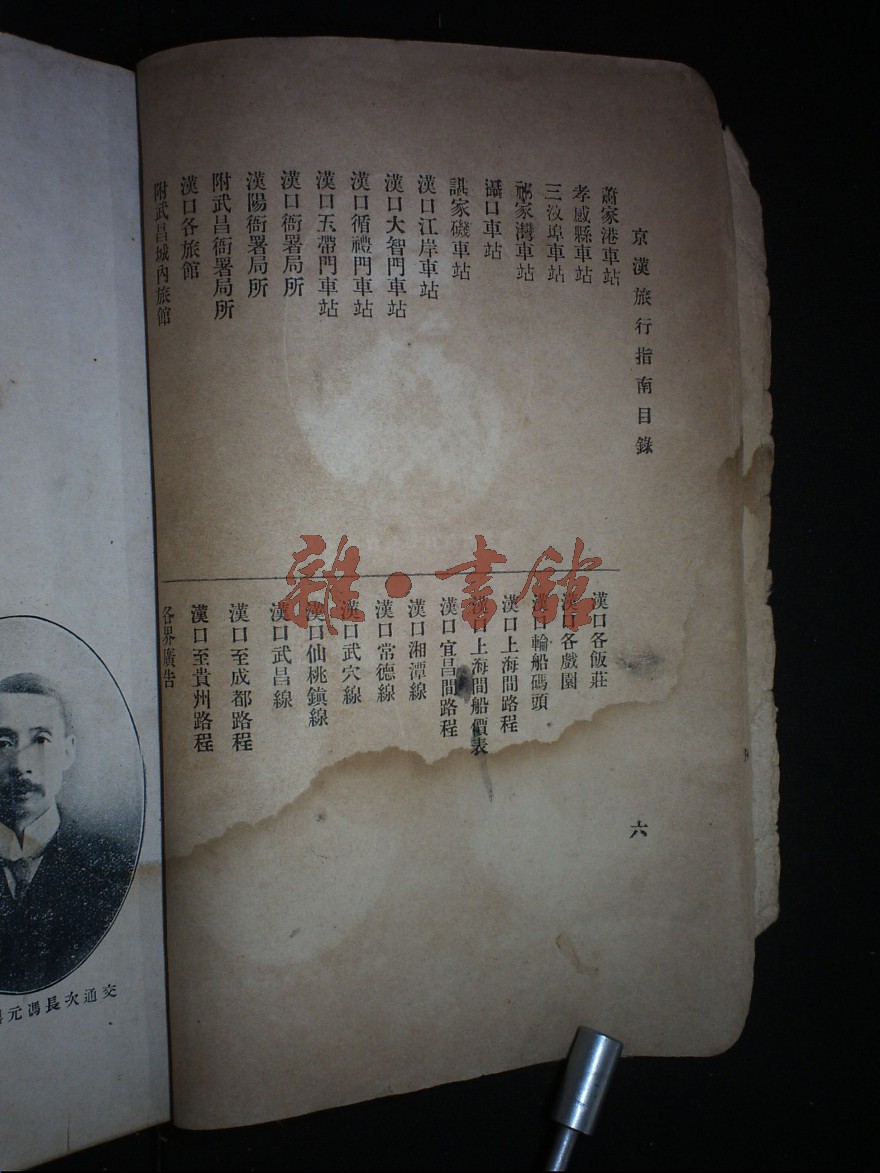 京漢旅行指南目錄
六
蕭家港車站
孝感縣車站
三汊埠車站
祁家灣車站
灄口車站
諶家磯車站
漢口江岸車站
漢口大智門車站
漢口循禮門車站
漢口玉帶門車站
漢口衙署局所
漢陽衙署局所
附武昌衙署局所
漢口各旅館
附武昌城內旅館
漢口各飯莊
漢口各戲園
漢口輪船碼頭
漢口上海間路程
漢口上海間船價表
漢口宜昌間路程
漢口湘潭線
漢口常德線
漢口武穴線
漢口仙桃鎮線
漢口武昌線
漢口至成都路程
漢口至貴州路程
各界廣告
交通次長馮元
雜·書館